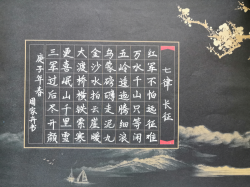 七律 长征
红军不怕远征难
万水千山只等闲
五岭逶迤腾细浪
乌蒙磅礴走泥丸
金沙水拍云崖暖
大渡桥横铁索寒
更喜岷山千里雪
三军过后尽开颜
庚子年春